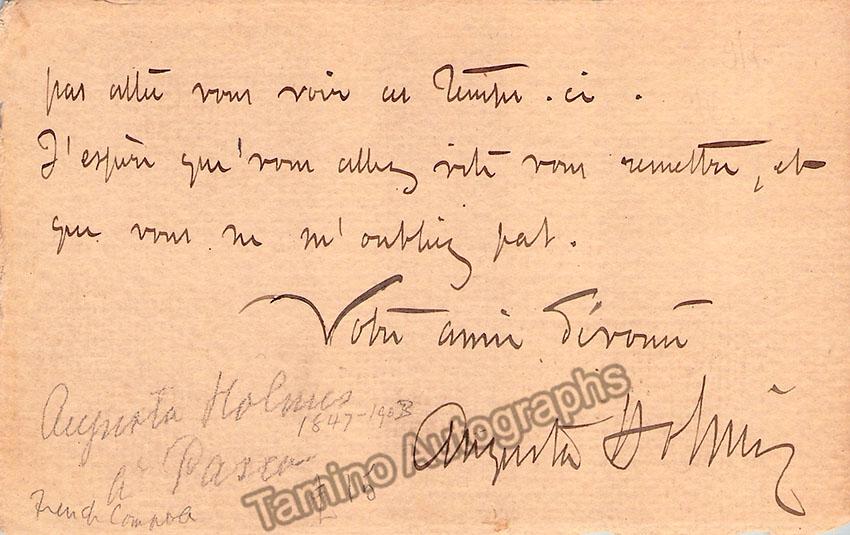 pas allée vous voir ces temps-ci.
J'espère que vous allez vite vous remettre, et
que vous ne m'oubliez pas.
Votre amie dévouée
Augusta Holmès
Augusta Holmès
1847-1903
French Compos
Tamino Autographs